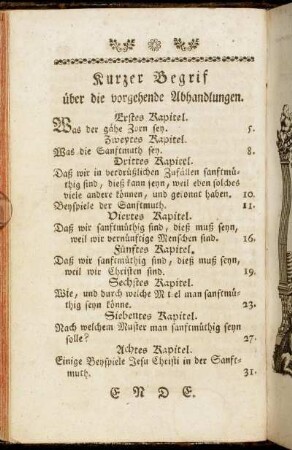 Kurzer Begrif
über die vorgehende Abhandlungen.
Erstes Kapitel.
Was der gähe Zorn sey. 5.
Zweytes Kapitel.
Was die Sanftmuth sey. 8.
Drittes Kapitel.
Daß wir in verdrüßlichen Zufällen sanftmü-
thig sind, dieß kann seyn, weil eben solches
viele andere können, und gekonnt haben. 10.
Beyspiele der Sanftmuth. 11.
Viertes Kapitel.
Daß wir sanftmüthig sind, dieß muß seyn,
weil wir vernünftige Menschen sind. 16.
Fünftes Kapitel.
Daß wir sanftmüthig sind, dieß muß seyn,
weil wir Christen sind. 19.
Sechstes Kapitel.
Wie, und durch welche Mittel man sanftmü-
thig seyn könne. 23.
Siebentes Kapitel.
Nach welchem Muster man sanftmüthig seyn
solle? 27.
Achtes Kapitel.
Einige Beyspiele Jesu Christi in der Sanft-
muth. 31.
E N D E.